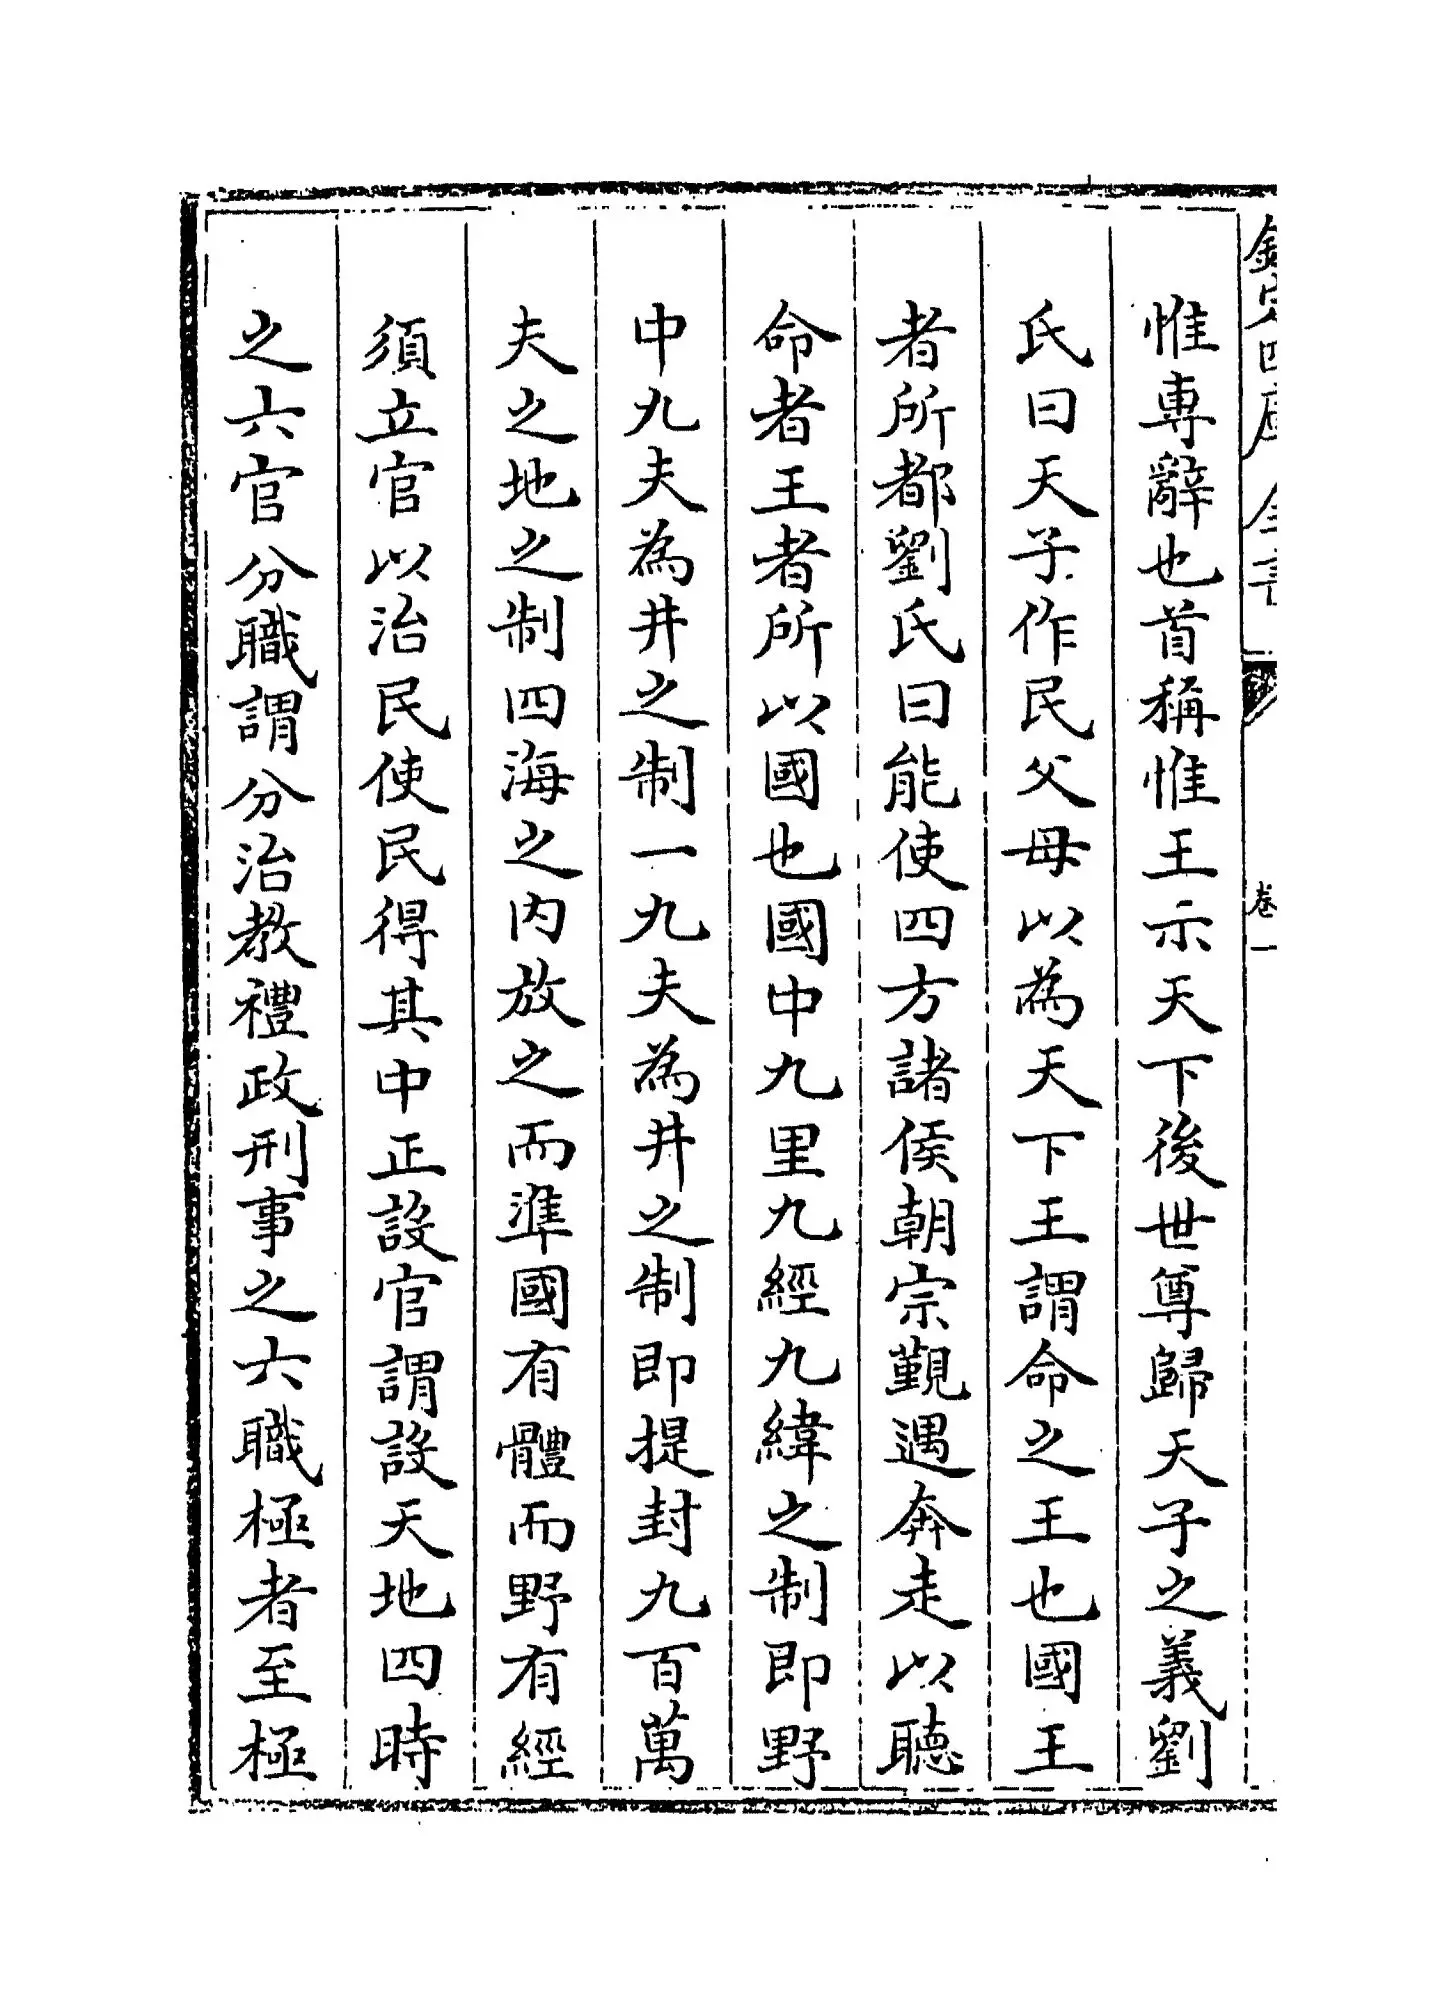 欽定四庫全書
卷一
惟專辭也首稱惟王示天下後世尊歸天子之義劉
氏曰天子作民父母以為天下王謂命之王也國王
者所都劉氏曰能使四方諸侯朝宗覲遇奔走以聽
命者王者所以國也國中九里九經九緯之制即野
中九夫為井之制一九夫為井之制即提封九百萬
夫之地之制四海之内放之而準國有體而野有經
須立官以治民使民得其中正設官謂設天地四時
之六官分職謂分治教禮政刑事之六職極者至極